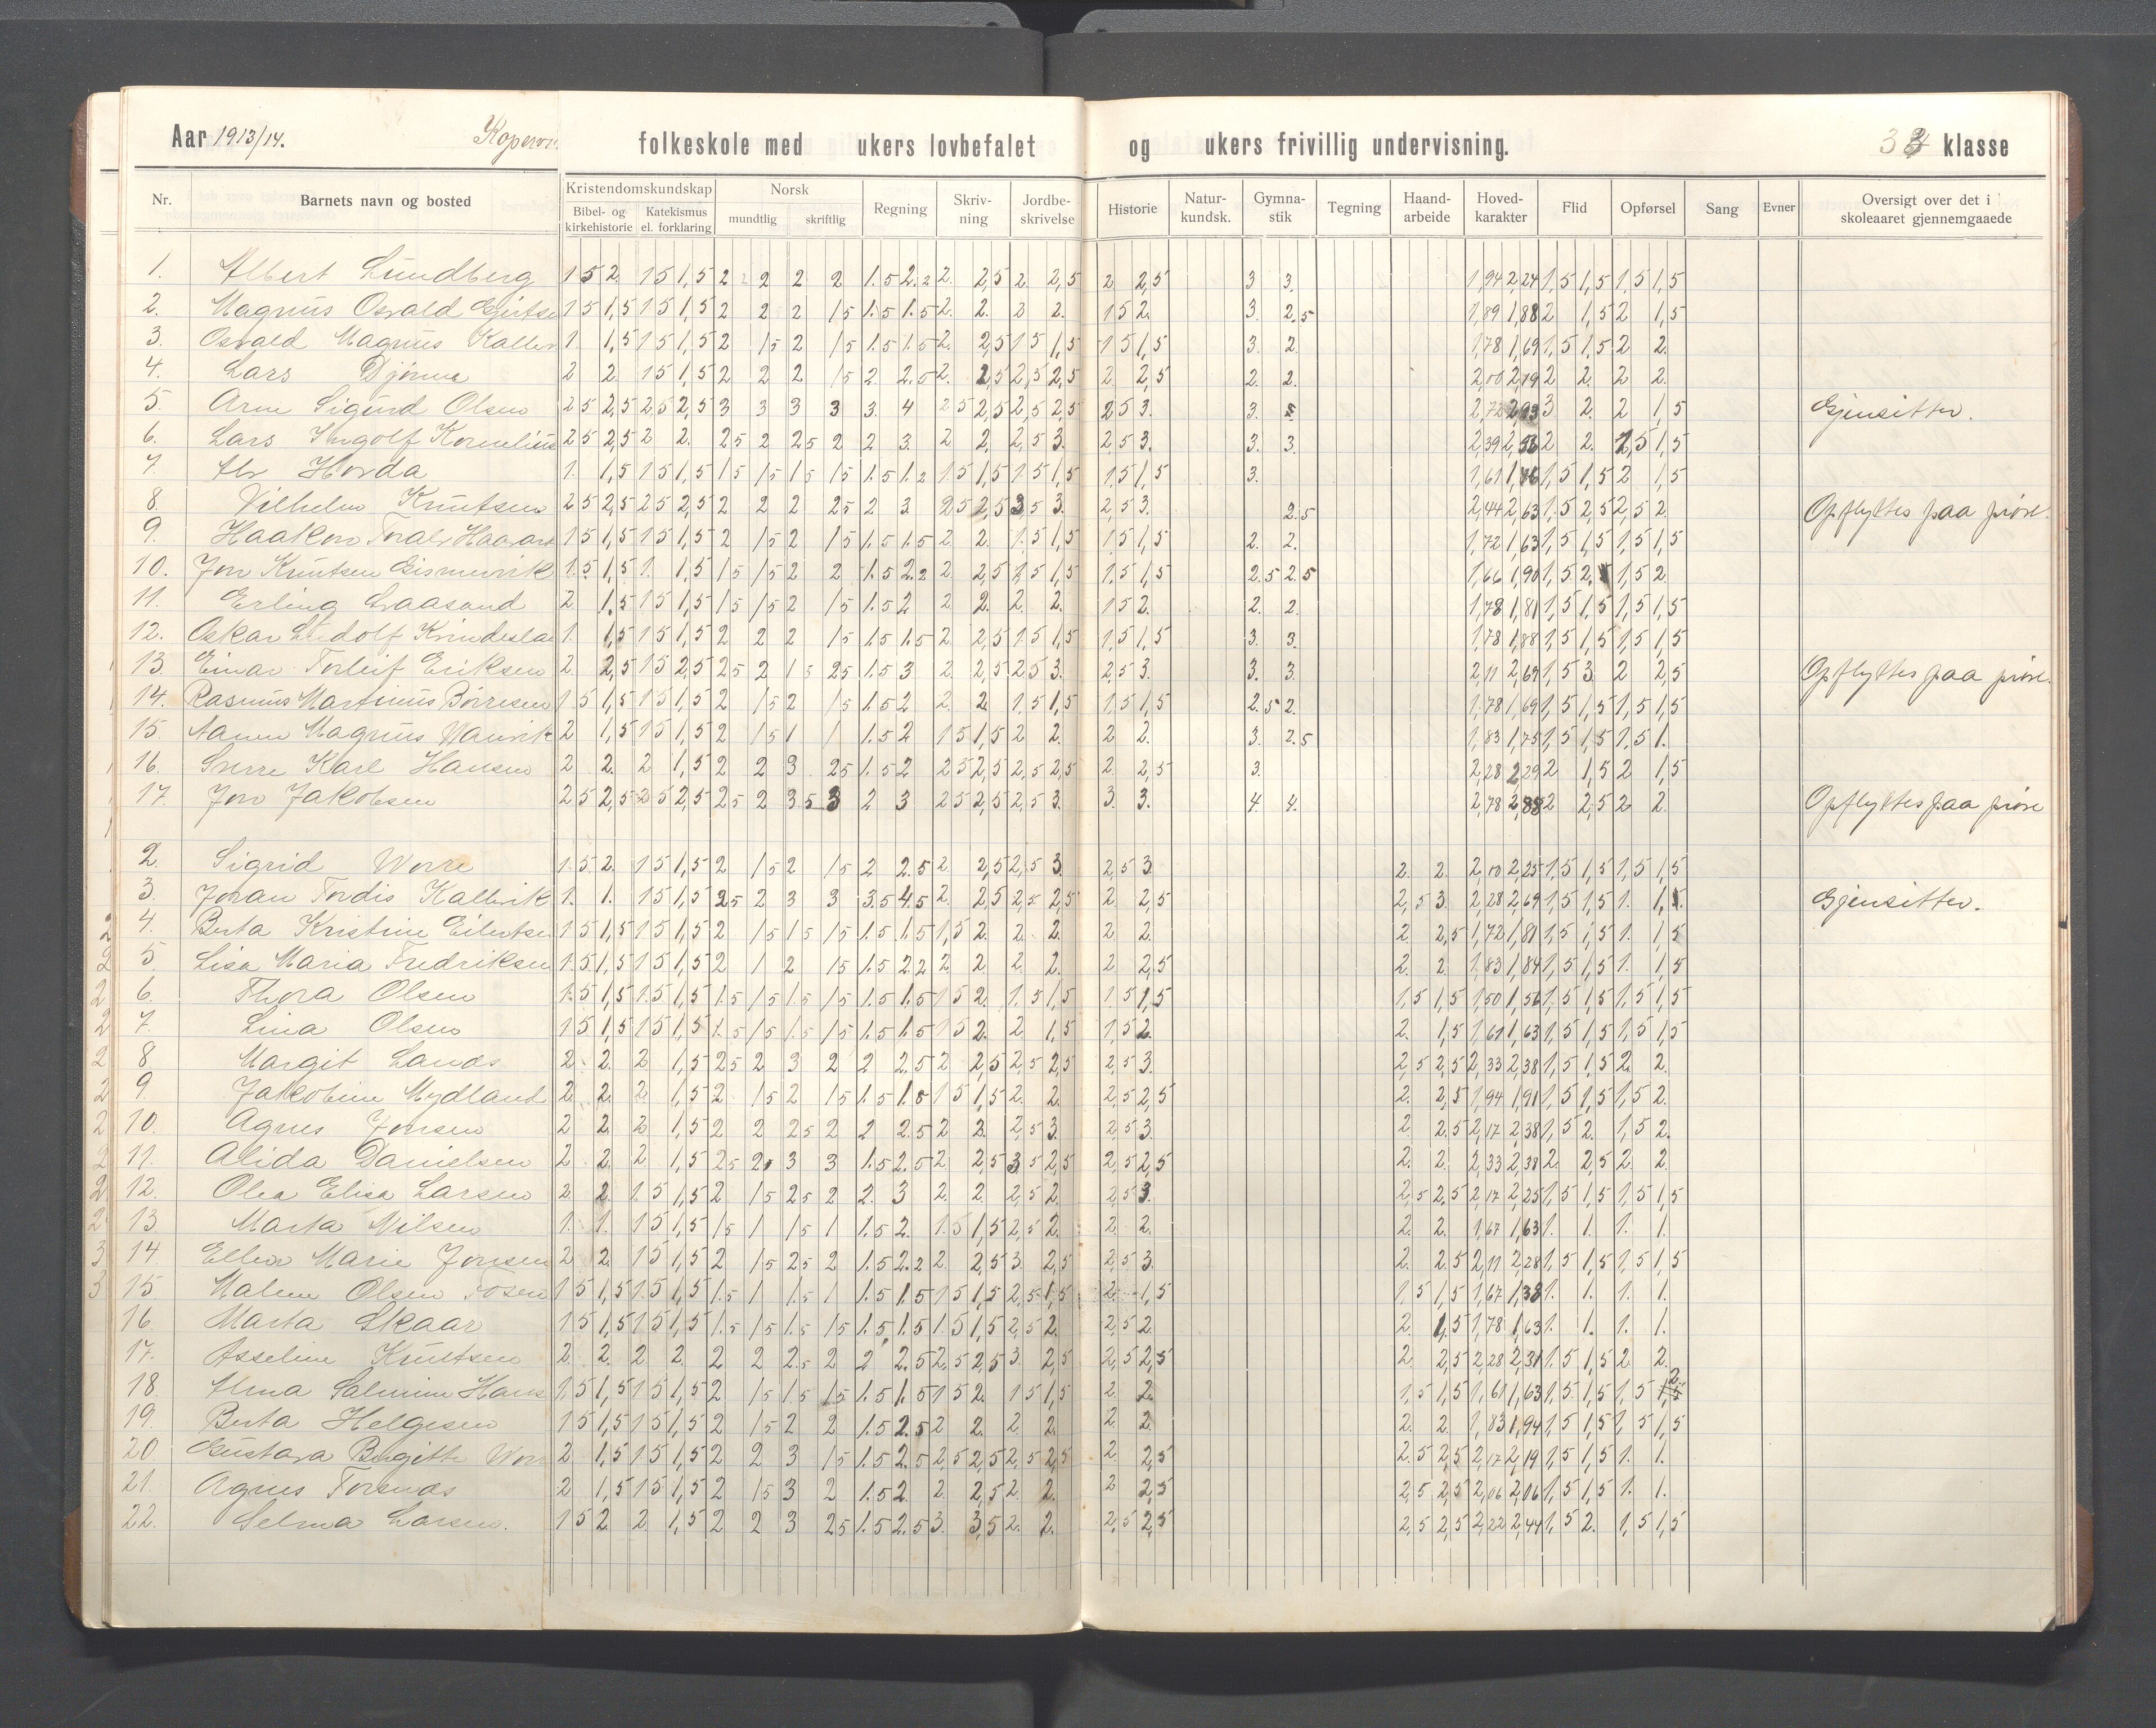 Aar 1913/14. folkeskole med ukers lovbefalet og ukers frivillig undervisning. 3 klasse
Nr. Barnets navn og bosted Kristendomskundskap Norsk Regning Skriv-ning Jordbe-skrivelse Historie Natur-kundsk. Gymna-stik Tegning Haand-arbeide Hoved-karakter Flid Opførsel Sang Evner Oversigt over det i skoleaaret gjennemgaaede
Bibel- og kirkehistorie Katekismus el. forklaring mundtlig skriftlig
1. Albert Lundberg 1 5 2. 1 5 1,5 2 2 2 2 1.5 2.2 2. 2,5 2. 2,5 2 2,5 3 3. 1,94 2,24 1,5 1,5 1,5 1,5
2. Magnus Osvald 1 5 1,5 1 5 1,5 2 2 2 15 1.5 1.5 2. 2. 2 2. 1 5 2. 3. 2.5 1,89 1,88 2 1,5 2 1,5
3. Osvald Magnus 1. 1,5 1 5 1,5 2 15 2 15 1.5 1.5 2. 2,5 1 5 1,5 1 5 1,5 3. 2. 1,78 1,69 1,5 1,5 2 2.
4. Lars Djönne 2 2. 1 5 1,5 2 2 2 15 2. 2.5 2. 2,5 2,5 2,5 2. 2,5 2. 2. 2,00 2,19 2 2. 2 2.
5. Arne Sigurd Olsen 2 5 2,5 2 5 2,5 3 3 3 3 3. 4 2 5 2,5 2,5 2,5 2 5 3. 3. 2,72 2,93 3 2. 2 1,5 Gjensitter.
6. Lars Ingolf Kornelius 2 5 2,5 2 2. 25 2 25 2 2 3. 2 2. 2,5 3. 2,5 3. 3. 3. 2,39 2,56 2 2. 1,5
7. Horda 1. 1,5 1 5 1,5 15 15 15 15 1.5 1.2 1 5 1,5 1 5 1,5 1,5 1,5 3. 1,61 1,5 1,5 2 1,5
8. Vilhelm Knutsen 2 5 2,5 2 5 2,5 2 2 2 25 2 3. 2 5 2,5 3,5 3. 2,5 3. 2.5 2,44 2,63 1.5 2,5 2,5 2. Opflyttes paa prøve.
9. Haakon 1 5 1,5 1 5 1,5 2 15 2 15 1.5 1.5 2. 2. 1.5 1,5 1,5 1,5 2. 2. 1,72 1,63 1,5 1,5 1,5 1,5
10. Jon Knutsen 1.5 1,5 1. 1,5 15 15 2 2 1.5 2.2 2 2,5 1,5 1,5 1.5 1,5 2.5 2.5 1,66 1,90 1,5 2. 1,5 2.
11. Erling Laasund 2. 1.5 1 5 1,5 15 15 2 15 1.5 2 2 2. 2. 2. 1 5 2. 2. 2. 1,78 1,81 1,5 1,5 1,5 1,5
12. Oskar 1. 1,5 1 5 1,5 2 2 2 15 1.5 1.5 2 2,5 1.5 1,5 1,5 1,5 3. 3. 1,78 1,88 1,5 1,5 1,5 1,5
13. Einar Torleif Eriksen 2 2,5 1 5 2,5 25 2 15 25 1.5 3 2. 2,5 2 5 3. 2,5 3. 3. 3. 2,11 2,69 1,5 3. 2 2,5 Opflyttes paa prøve.
14. Rasmus Martinius Börresen 1 5 1,5 1 5 1,5 2 15 2 15 1.5 2 2. 2 1.5 1,5 1,5 1,5 2.5 2. 1,78 1,69 1,5 1,5 1,5 1,5
15. Magnus 2 1,5 1 5 1,5 2 15 1 1 1.5 2 1 5 1,5 2 2. 2 2. 3. 2.5 1,83 1,75 1,5 1,5 1.5 1.
16. Sverre Karl Hansen 2 2. 2 1,5 2 2 3 25 1.5 2 2 5 2,5 2,5 2,5 2. 2,5 3. 2,28 2,29 2 1,5 2 1,5
17. Jon Jakobsen 2 5 2,5 2 5 2,5 25 2 3.5 3 2 3 2 5 2,5 2,5 3. 3. 3. 4. 4. 2,78 2,88 2 2,5 2 2. Opflyttes paa prøve
2. Sigrid Worre 1.5 2. 1 5 1,5 2 15 2 15 2 2.5 2. 2,5 2,5 3. 2,5 3. 2. 2. 2,00 2,25 1,5 1,5 1,5 1,5
3. Joran Tordis Kallevik 1. 1. 1 5 1,5 25 2 3 3 3.5 4.5 2. 2,5 2,5 2,5 2 2,5 2,5 3. 2,28 2,69 1,5 1,5 1. Gjensitter.
4. Berta Kristine 1 5 1,5 1 5 1,5 2 15 15 15 1.5 1.5 1,5 2. 2. 2. 2 2. 2. 2,5 1,72 1,81 1,5 1,5 1. 1,5
5. Lisa Maria Fredriksen 1.5 1,5 1 5 1,5 2 1 2 15 1.5 2.2 2. 2. 2. 2. 2. 2,5 2. 2. 1,83 1,84 1,5 1,5 1. 1,5
6. Thora Olsen 1.5 1,5 1.5 1,5 1.5 15 1.5 15 1.5 1.5 1 5 2. 1.5 1,5 1 5 1,5 1,5 1,5 1,50 1,56 1,5 1,5 1,5 1,5
7. Lina Olsen 1 5 1,5 1 5 1,5 1.5 15 1.5 15 1.5 1.5 1 5 2. 2. 1,5 1,5 2. 2. 1,5 1,61 1,63 1,5 1,5 1,5 1,5
8 Margit Lanes 2. 2. 2 1,5 25 2 3 2 2 2.5 2 2,5 2,5 2,5 2,5 3. 2,5 2,5 2,33 2,38 1,5 1,5 2. 2.
9. Jakobine Mydland 2. 2. 2. 1,5 2 15 2 15 1.5 1.8 1 5 1,5 2. 2. 2,5 2,5 2. 2,5 1,94 1,91 1,5 1,5 1,5 2.
10. Agnes Jonsen 2 2. 2 1,5 2 2 25 2 2 2.5 2 2. 2,5 3. 2,5 3. 2. 2,5 2,17 2,38 1,5 2. 1,5 2.
11. Alida Danielsen 2 2. 2 1,5 25 2 3 3 1.5 2.5 2. 2,5 3,5 2,5 2,5 2,5 2. 2. 2,33 2,38 2. 2,5 2. 2.
12. Olea Elisa Larsen 2. 2. 1 5 1,5 2 15 25 2 2. 3 2. 2. 2,5 2. 2,5 3. 2,5 2,5 2,17 2,25 1,5 1,5 1,5 1,5
13 Marta Nilsen 1. 1. 1 5 1,5 15 1 15 1 1.5 2. 1.5 1,5 2,5 2. 2 2. 2. 2. 1,67 1,63 1. 1. 1. 1.
14. Ellen Marie Jonsen 2 2. 1 5 1,5 2 15 25 2 1.5 2.2 2. 2,5 3. 2,5 2,5 3. 2. 2,5 2,11 2,28 1,5 1,5 1,5 1,5
15. Malene Olsen 1 5 1,5 1.5 1,5 1.5 1 1.5 1 1.5 1.5 1 5 1,5 2,5 1,5 2. 1,5 1,5 1,5 1,67 1,38 1. 1. 1. 1.
16. Marta Skaar 1 5 1,5 1 5 1,5 1.5 15 1.5 15 1.5 1.5 1.5 1,5 2,5 2. 2,5 2. 2. 1,5 1,78 1,63 1. 1. 1. 1.
17. Asseline Knutsen 2. 2. 2. 2. 2 2 2.5 2 2 2.5 2,5 2,5 3. 2,5 2,5 2,5 2. 2,5 2,28 2,31 1.5 1,5 2. 2.
18 Alma Salmine 1,5 1,5 1 5 1,5 2 15 1.5 15 1.5 1.5 1 5 2. 1 5 1,5 2. 2. 1,5 1,5 1,61 1,63 1,5 1,5 1,5 2
19. Berta Helgesen 1 5 1,5 1 5 1,5 2 15 2 2 1.5 2.5 2 2. 2. 2. 2. 2. 2. 2. 1,83 1,94 1,5 1,5 1,5 1,5
20. Gustava Birgitte 2. 1,5 1 5 1,5 2 2 3 15 1.5 2.5 2,5 2,5 2,5 2,5 2 2,5 2.5 2,5 2,17 2,19 1,5 1,5 1. 1.
21. Agnes 2 1,5 1 5 1,5 2 15 3 2 1.5 2. 2. 2,5 2. 2. 2 2,5 2,5 2,5 2,06 2,06 1,5 1,5 1. 1.
22. Selma Larsen. 1 5 2. 2 1,5 2 2 3 25 1.5 2.5 3. 3,5 2. 2. 2,5 2,5 2,5 2,5 2,22 2,44 1,5 2. 1,5 1,5